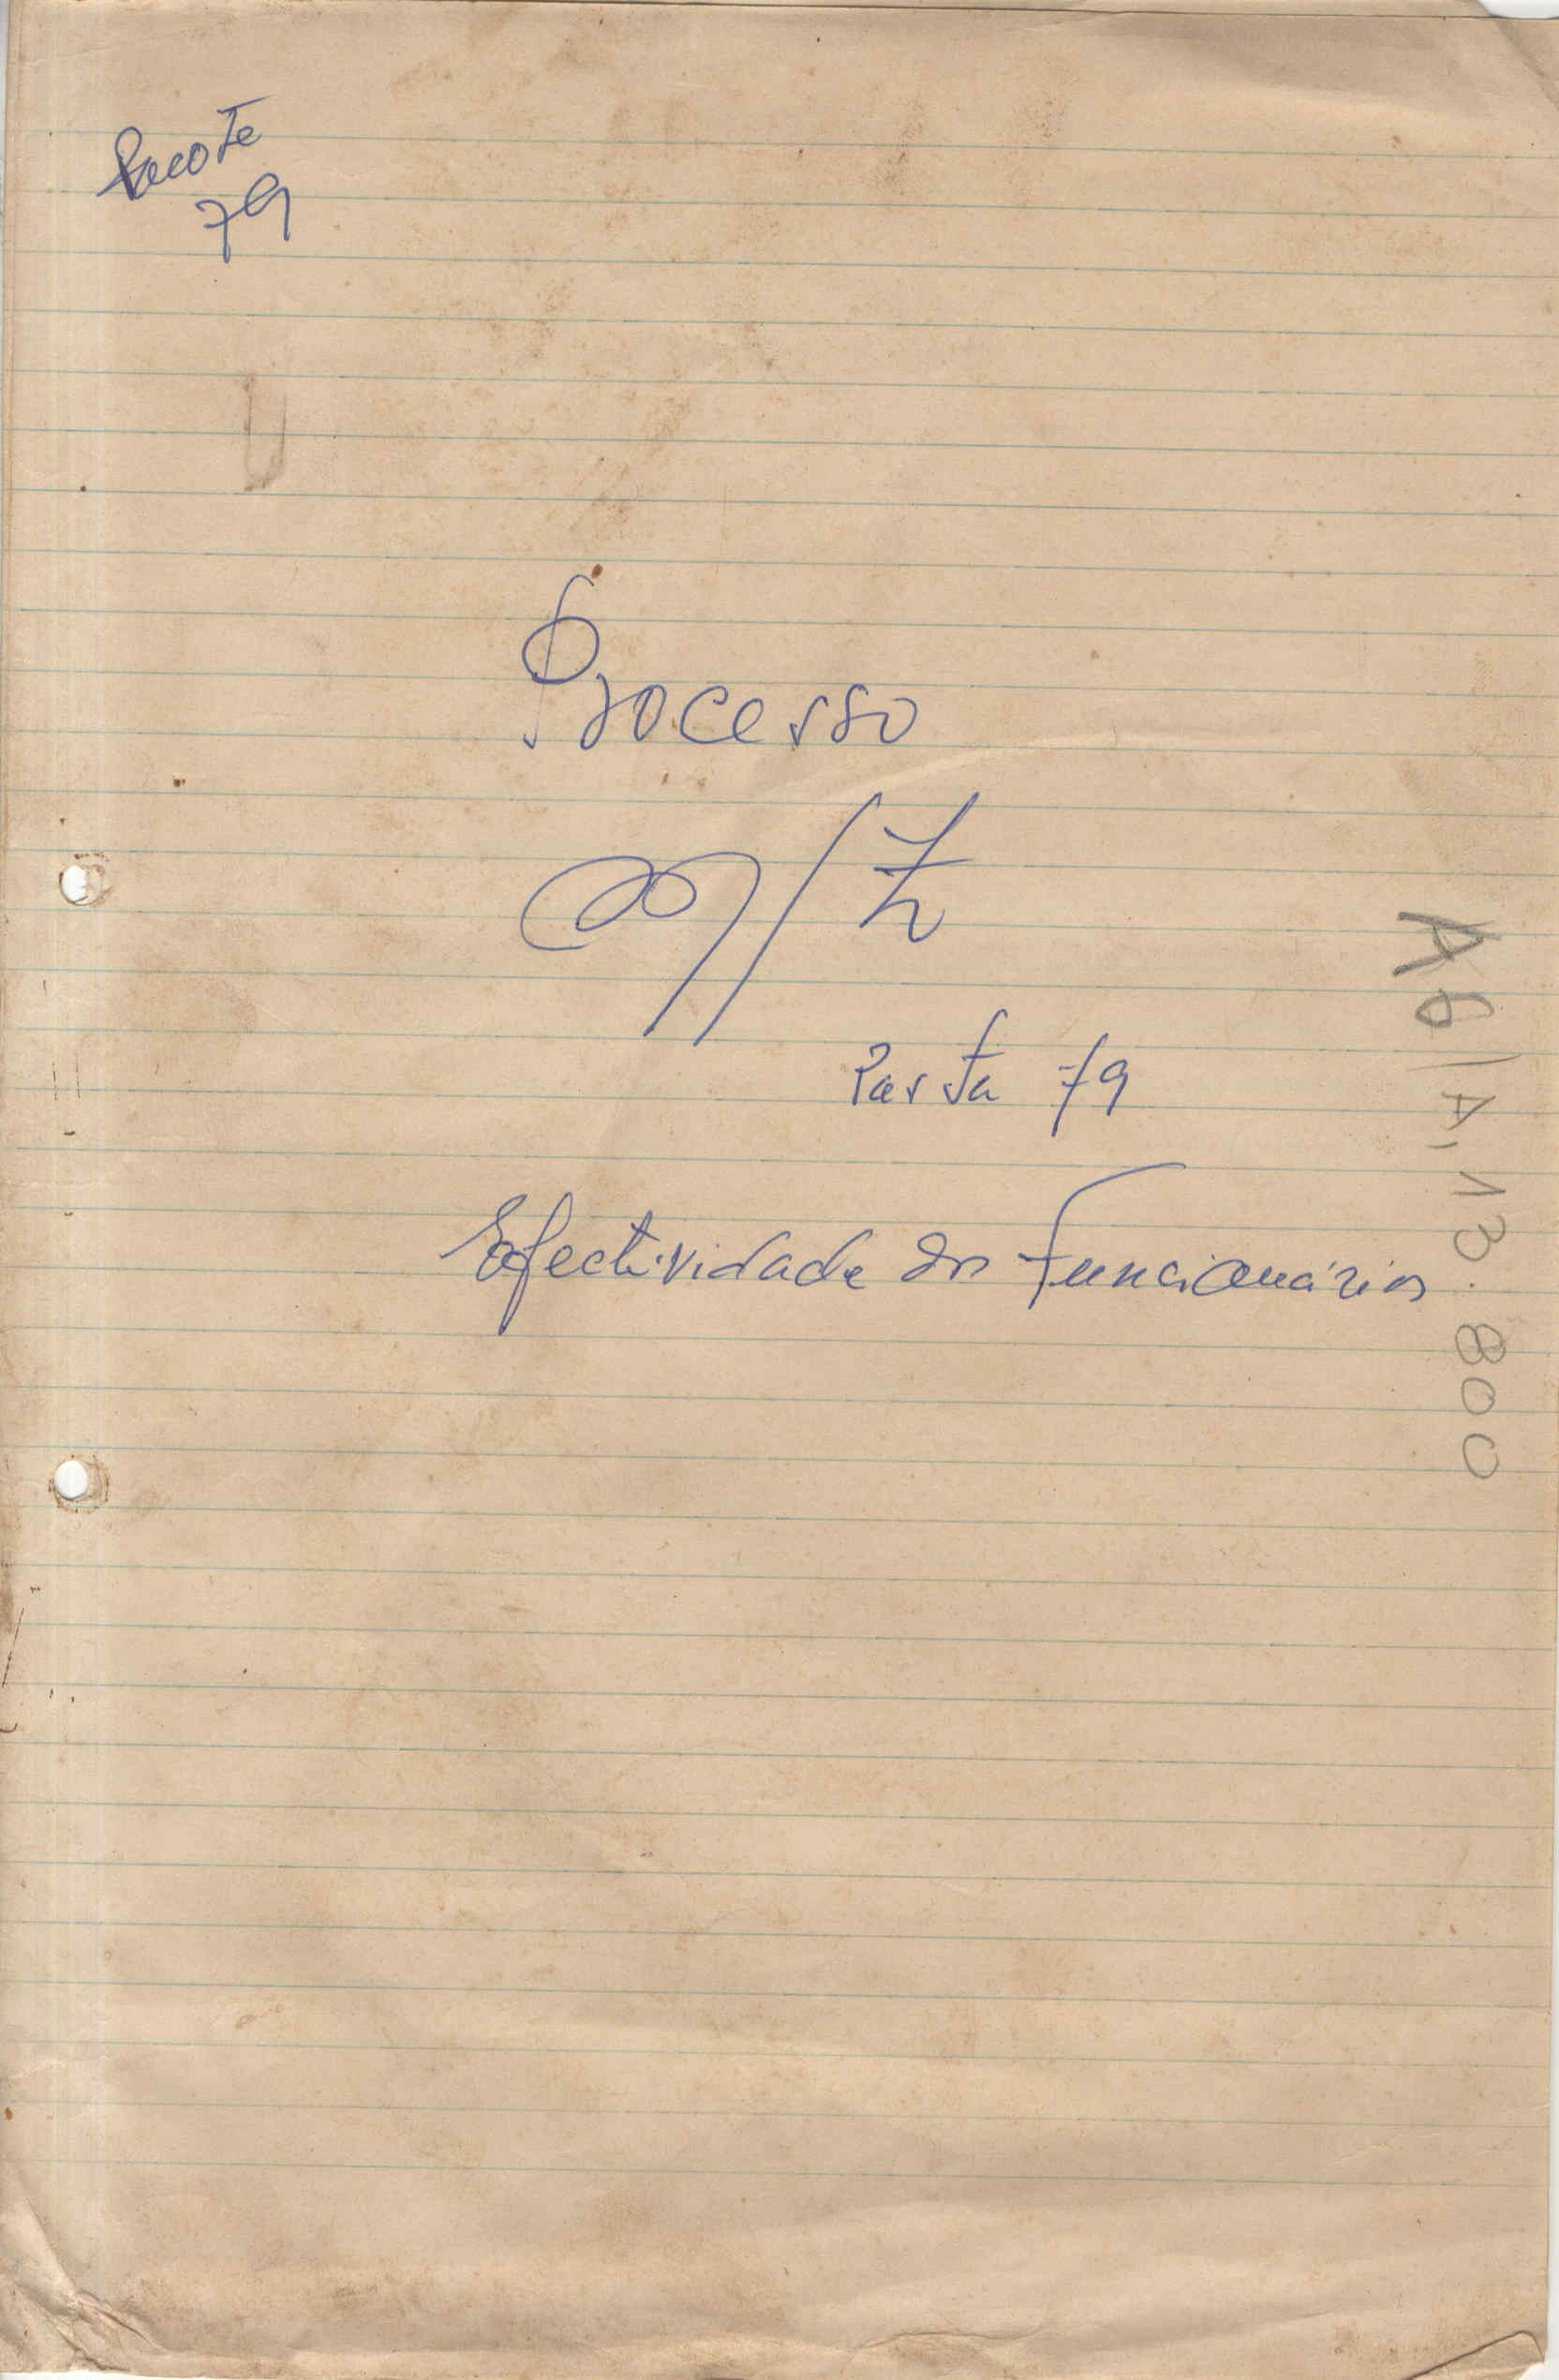 Pacote
79
Processo
Pasta 79
Efectividade dos Funcionários
A6/A,13.800